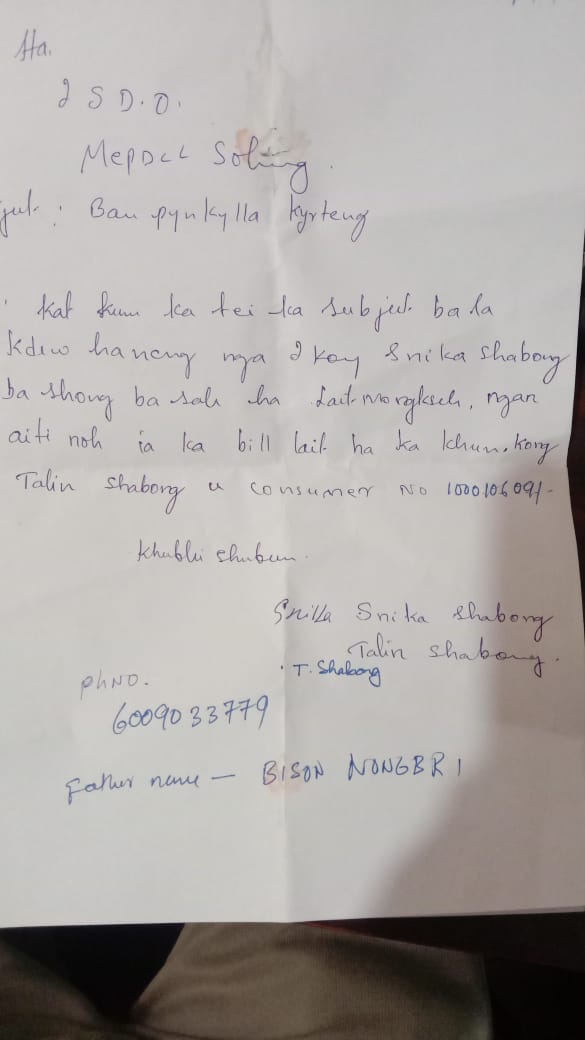 Ha.
I S D.O.
MePDCL Sohiong.
jut : Ban pynkylla kyrteng
kat kum ka tei ka subject ba la
kdew haneng nga I kong Snika Shabong
ba shong ba sah ha Lait-morgksch, ngan
aiti noh ia ka bill lait ha ka khun, kong
Talin Shabong u consumer No 1000106091-
Khublei shibun.
Snika Shabong
Talin Shabong.
T. Shabong
PhNO.
6009033779
Father name - BISON NONGBRI